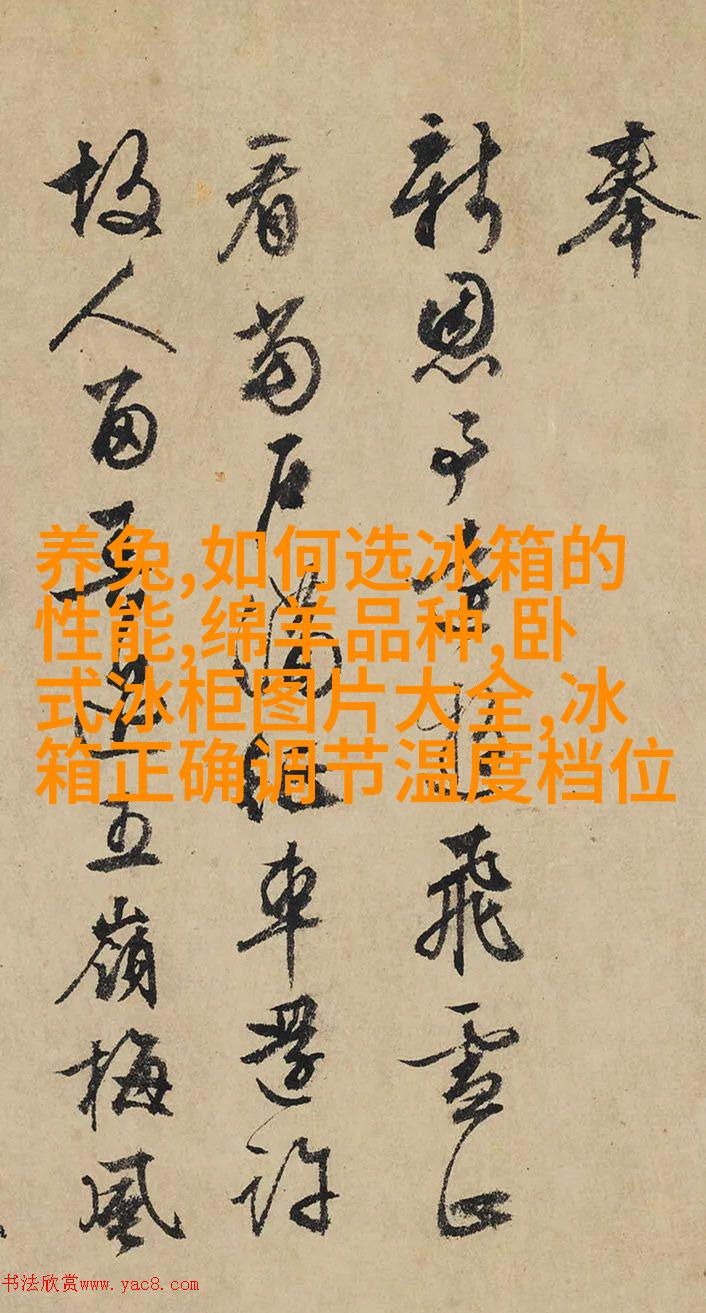 奉
新恩予飛雪正
看車還許
故人留五嶺梅風
养兔,如何选冰箱的
性能,绵羊品种,卧
式冰柜图片大全,冰
箱正确调节温度档位
书法欣赏www.yac8.com